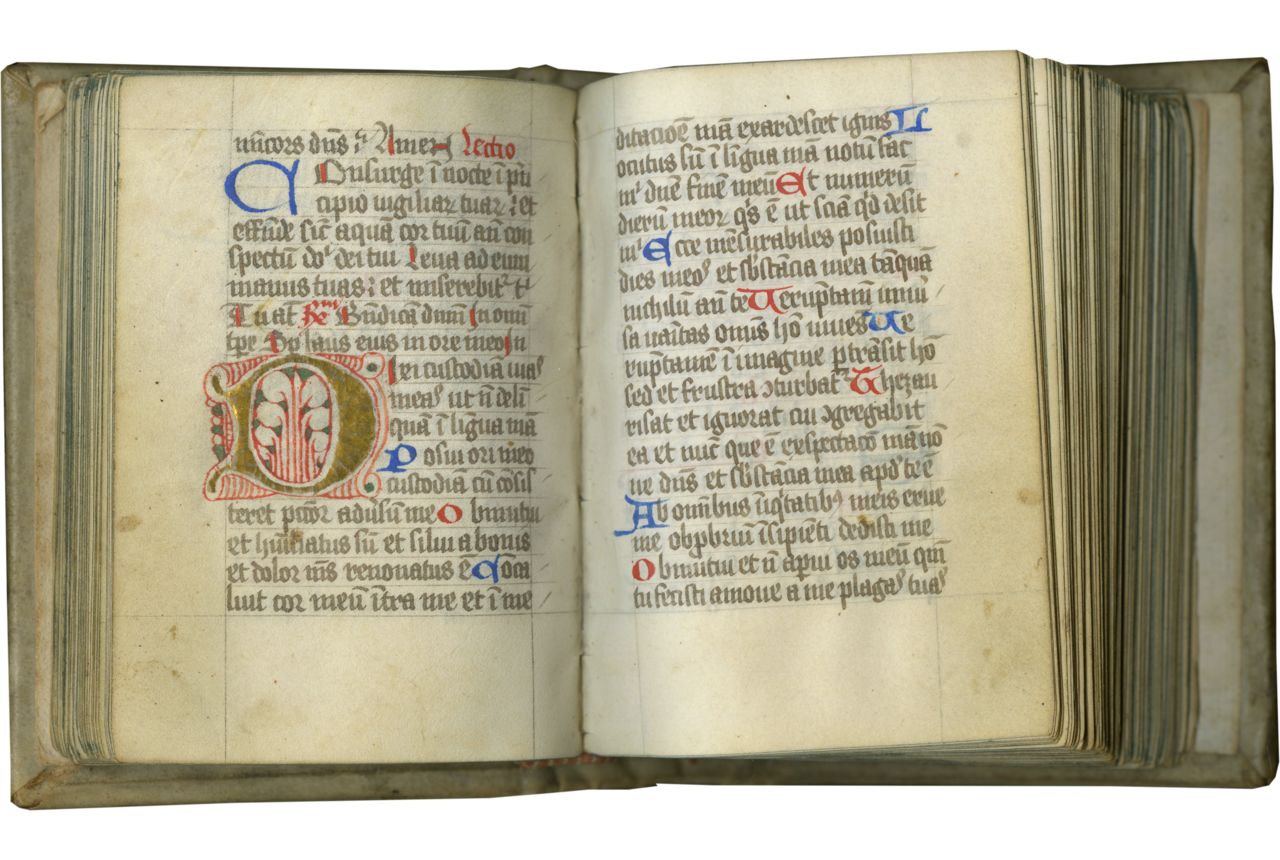 mīcors dn̄s ⁊c̄ Amen Lectio
Consurge ī nocte ī prī
cipio vigiliar tuar ⁊ et
effūde sic̄ aquā cor tuū an̄ con
spectū dn̄i dei tui Leva ad eum
manus tuas ⁊ et miserebit᷑ t᷑
Tu at̄ Bn̄dicā dnm̄ In omn̄
tpe laus eius in ore meo In
Dixi custodiā vias
meas ut n̄ delī
quā ī līgua mā
Posui ori meo
custodiā cū cōsis
teret pctor adūsum me Obmutui
et hūiliatus sū et silui a bonis
et dolor ms̄ renovatus ē Conca
luit cor meū ītra me et ī me
ditacioē mā exardescet ignis L
ocutus sū ī līgua mā notū fac̄
m᷑ dn̄e finē meū Et numerū
dierū meor qⁱs ē ut sciā qd̄ desit
m᷑ Ecce mēsurabiles posuisti
dies meos et sb̄stācia mea tāquā
nichilū an̄ te Verūptam̄ univ̄
sa vanitas omīs hō vives Ve
rūptamē ī imagine ptrāsit hō
sed et frustra ↄturbat᷑ Thezau
risat et ignorat cui ↄgregabit
ea et nūc que ē exspectacō mā nō
ne dn̄s et sb̄stācia mea apd̄ te ē
Ab omībus īiqtatibꝫ meis erue
me obpbrium īsipiēti dedisti me
Obmutui et n̄ aperui os meū qm̄
tu fecisti amove a me plagas tuas